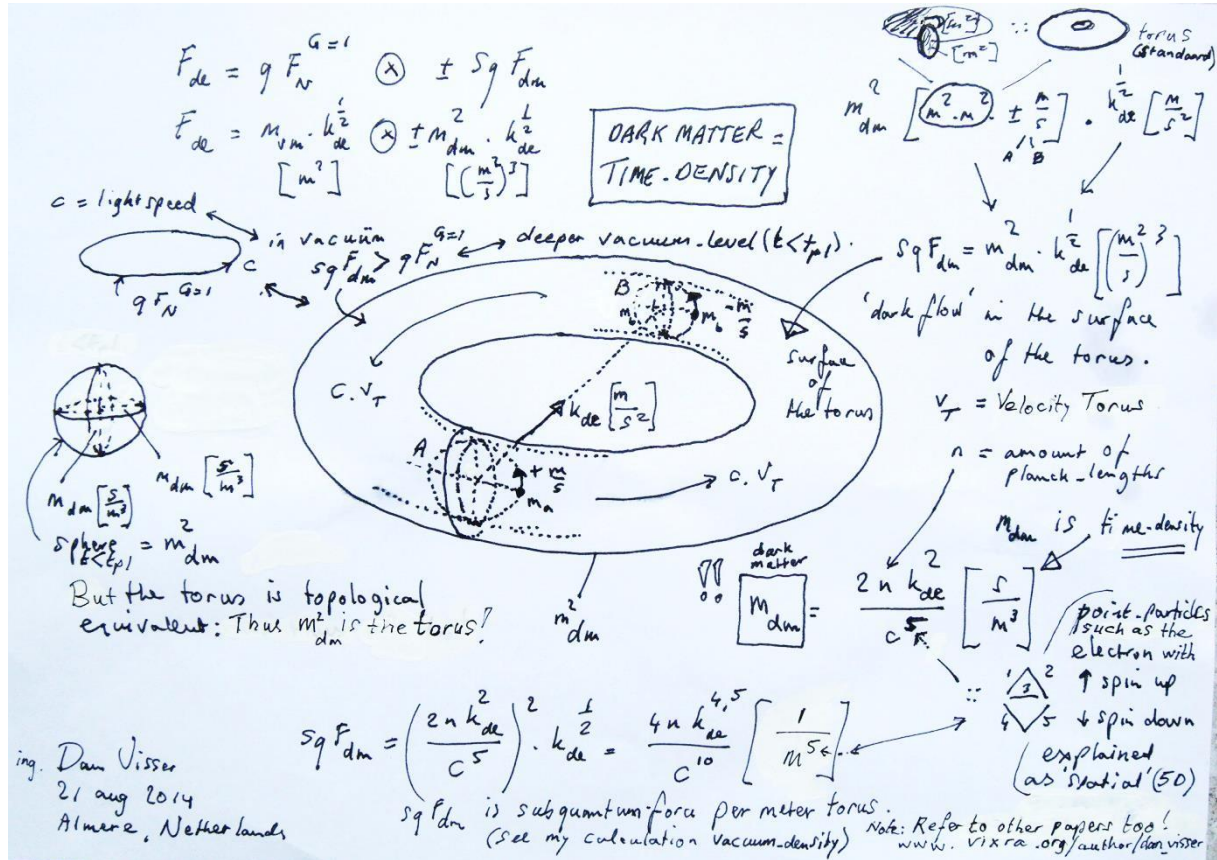 F_de = q F_N^{G=1} ⊗ ± Sq F_dm
F_de = m_vm · k_de^{1/2} ⊗ ± m_dm^2 · k_de^{1/2}
[m^2] [(m^2/s)^3]
DARK MATTER =
TIME-DENSITY
[m^2] :: torus
(Standaard)
[m^2]
m_dm^2 [m^2·m^2 · ± m/s] · k_de^{1/2} [m/s^2]
A B
c = lightspeed
in vacuüm
c
q F_N^{G=1}
sq F_dm > q F_N^{G=1} ↔ deeper vacuum-level (t < t_pl).
sq F_dm = m_dm^2 · k_de^{1/2} [(m^2/s)^3]
'dark flow' in the surface
of the torus.
v_T = Velocity Torus
n = amount of
planck-lengths
m_dm is time-density
B
m_b m_b - m/s
surface
of
the torus
c.v_T
k_de [m/s^2]
A
+ m/s
m_a
c.v_T
m_dm^2
m_dm [s/m^3] m_dm [s/m^3]
sphere_{t<t_pl} = m_dm^2
But the torus is topological
equivalent: Thus m_dm^2 is the torus!
!! dark
matter
m_dm = 2 n k_de^2 / c^5 [s/m^3]
point-particles
such as the
electron with
:: 1 3 2 ↑ spin up
4 5 ↓ spin down
explained
as 'spatial' (5D)
sq F_dm = (2 n k_de^2 / c^5)^2 · k_de^{1/2} = 4 n k_de^{4,5} / c^10 [1/m^5].
sq F_dm is subquantum-force per meter torus.
(See my calculation vacuum-density)
Note: Refer to other papers too!
www.vixra.org/author/dan_visser
ing. Dan Visser
21 aug 2014
Almere, Netherlands